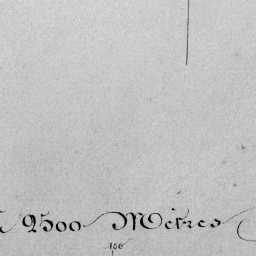 2500 Mètres
100